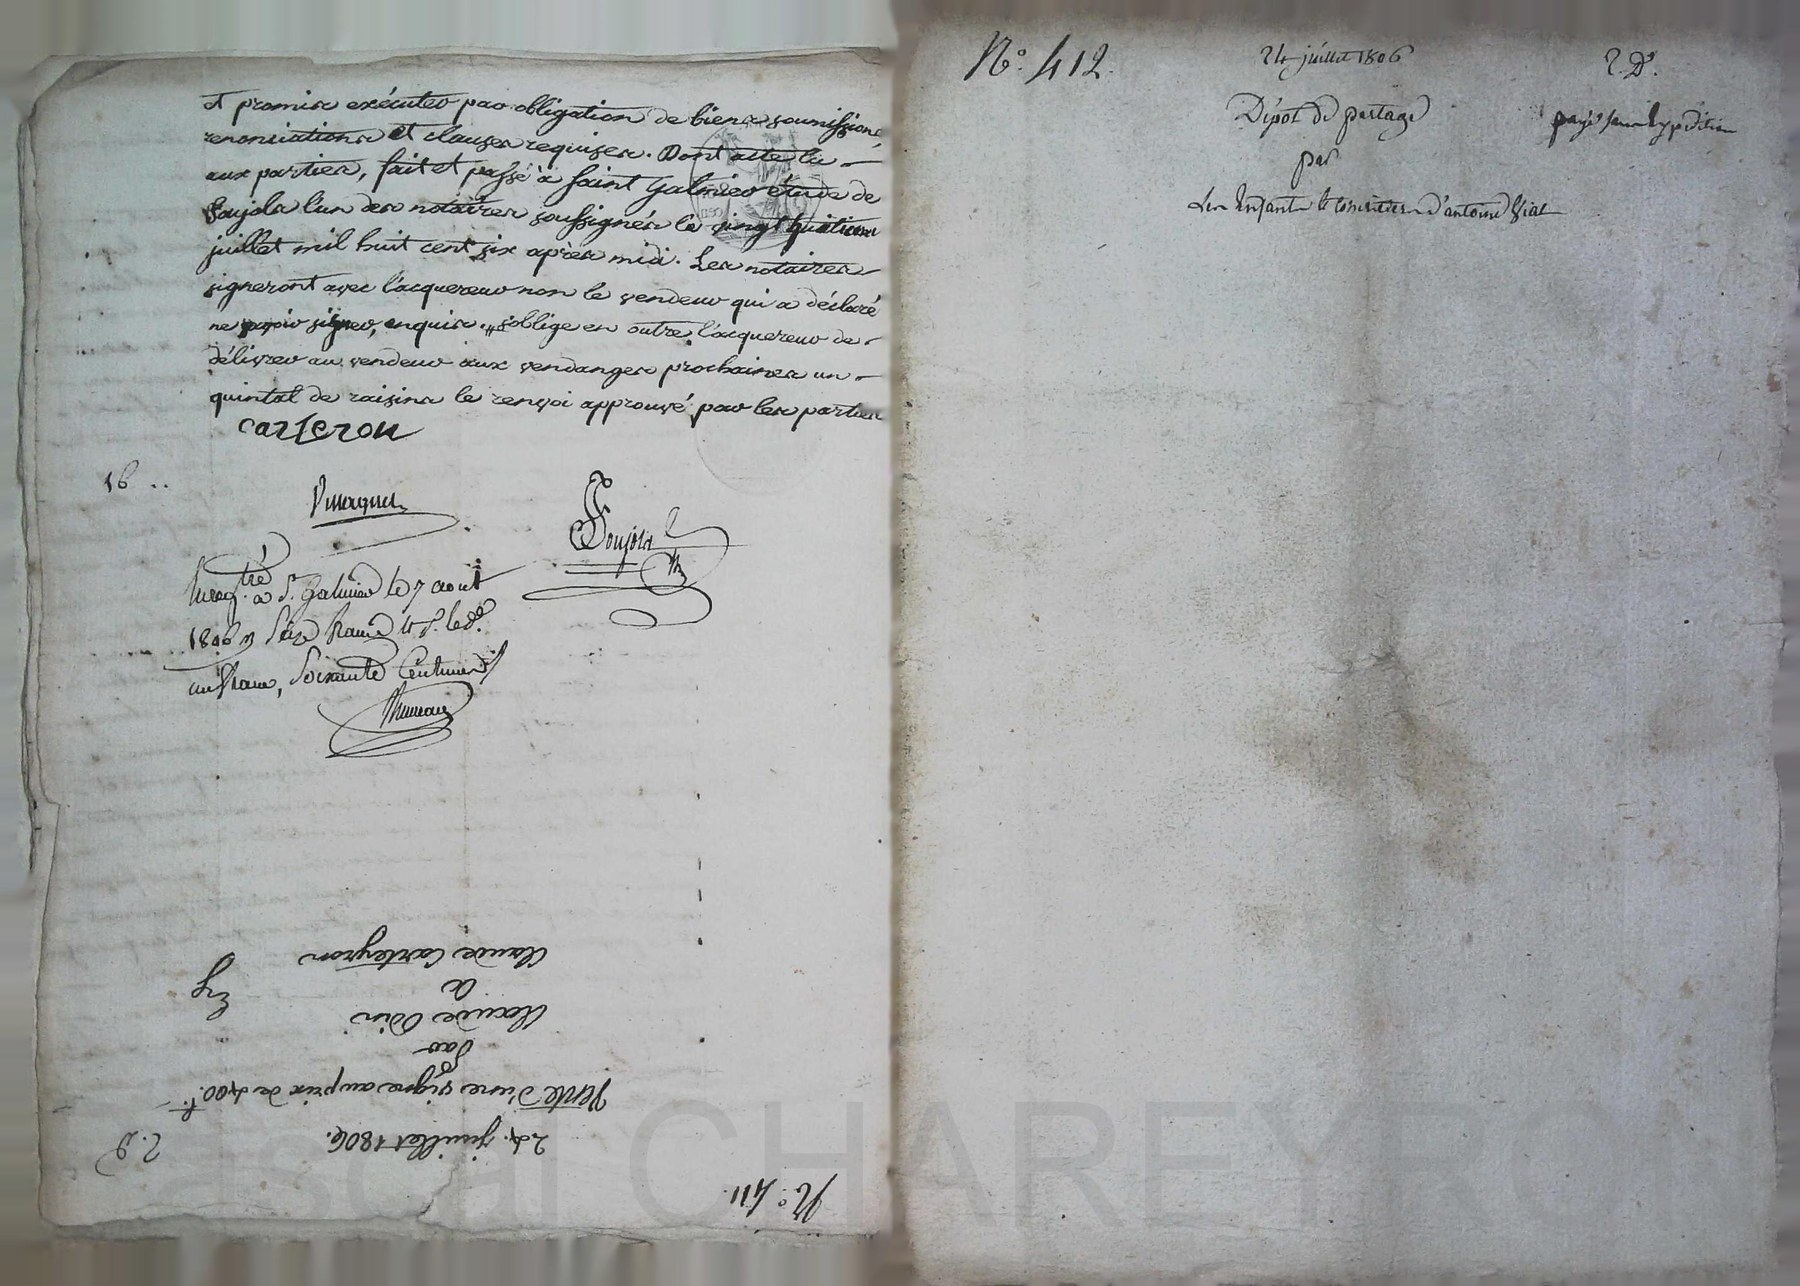 et promis exécuter par obligation de biens soumissions
renonciations et clauses requises. Dont acte lu
aux parties, fait et passé à saint Galmier étude de
Soujols l'un des notaires soussignés le vingt quatre
juillet mil huit cent six après midi. Les notaires
signeront avec l'acquereur non le vendeur qui a déclaré
ne savoir signer, enquis. s'oblige en outre l'acquereur de
délivrer au vendeur aux vendanges prochaines un
quintal de raisins le renvoi approuvé par les parties
carteron
16 ..
Soujols
Enreg.tré à St. Galmier le 7 aout
1806 Seize francs
un franc, Soixante Centimes
N.° 411.
24. juillet 1806.
R. D
Vente d'une vigne au prix de 400.f
par
Claude Odin
à
Claude Carteyron
N.° 412.
24 juillet 1806
R. D.
Dépot de partage
par
Les Enfants et héritiers d'antoine Viat
payé sans Expédition
ascal CHAREYRON